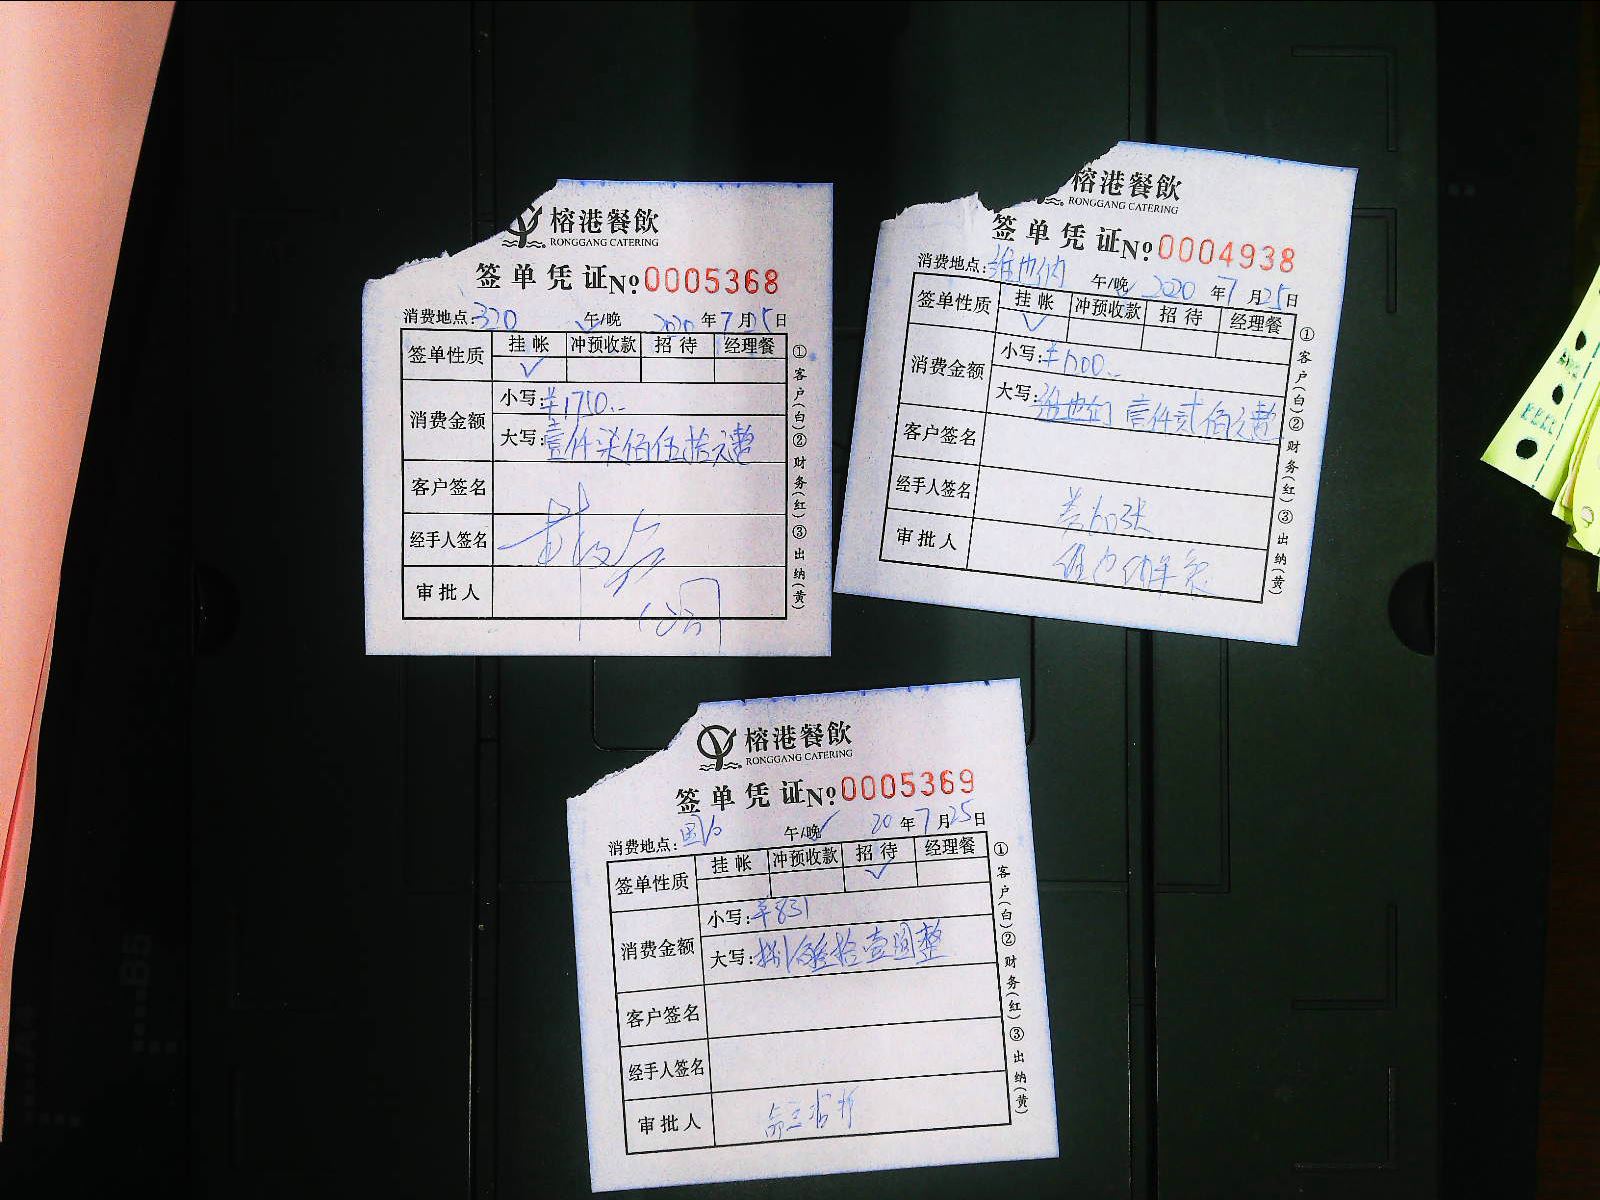 榕港餐飲
RONGGANG CATERING
签单凭证No0005368
消费地点:320 午/晚 2020年7月25日
签单性质 挂帐 冲预收款 招待 经理餐
✓
消费金额 小写:¥1750..
大写:壹仟柒佰伍拾元整
客户签名
经手人签名
审批人
公司
①客户(白)②财务(红)③出纳(黄)
榕港餐飲
RONGGANG CATERING
签单凭证No0004938
消费地点:维也纳 午/晚 2020年7月25日
签单性质 挂帐 冲预收款 招待 经理餐
✓
消费金额 小写:
大写:维也纳 壹仟贰佰元整
客户签名
经手人签名
审批人 维也纳
①客户(白)②财务(红)③出纳(黄)
榕港餐飲
RONGGANG CATERING
签单凭证No0005369
消费地点: 午/晚✓ 20年7月25日
签单性质 挂帐 冲预收款 招待 经理餐
✓
消费金额 小写:¥831
大写:捌佰叁拾壹圆整
客户签名
经手人签名
审批人
①客户(白)②财务(红)③出纳(黄)
B5
A4